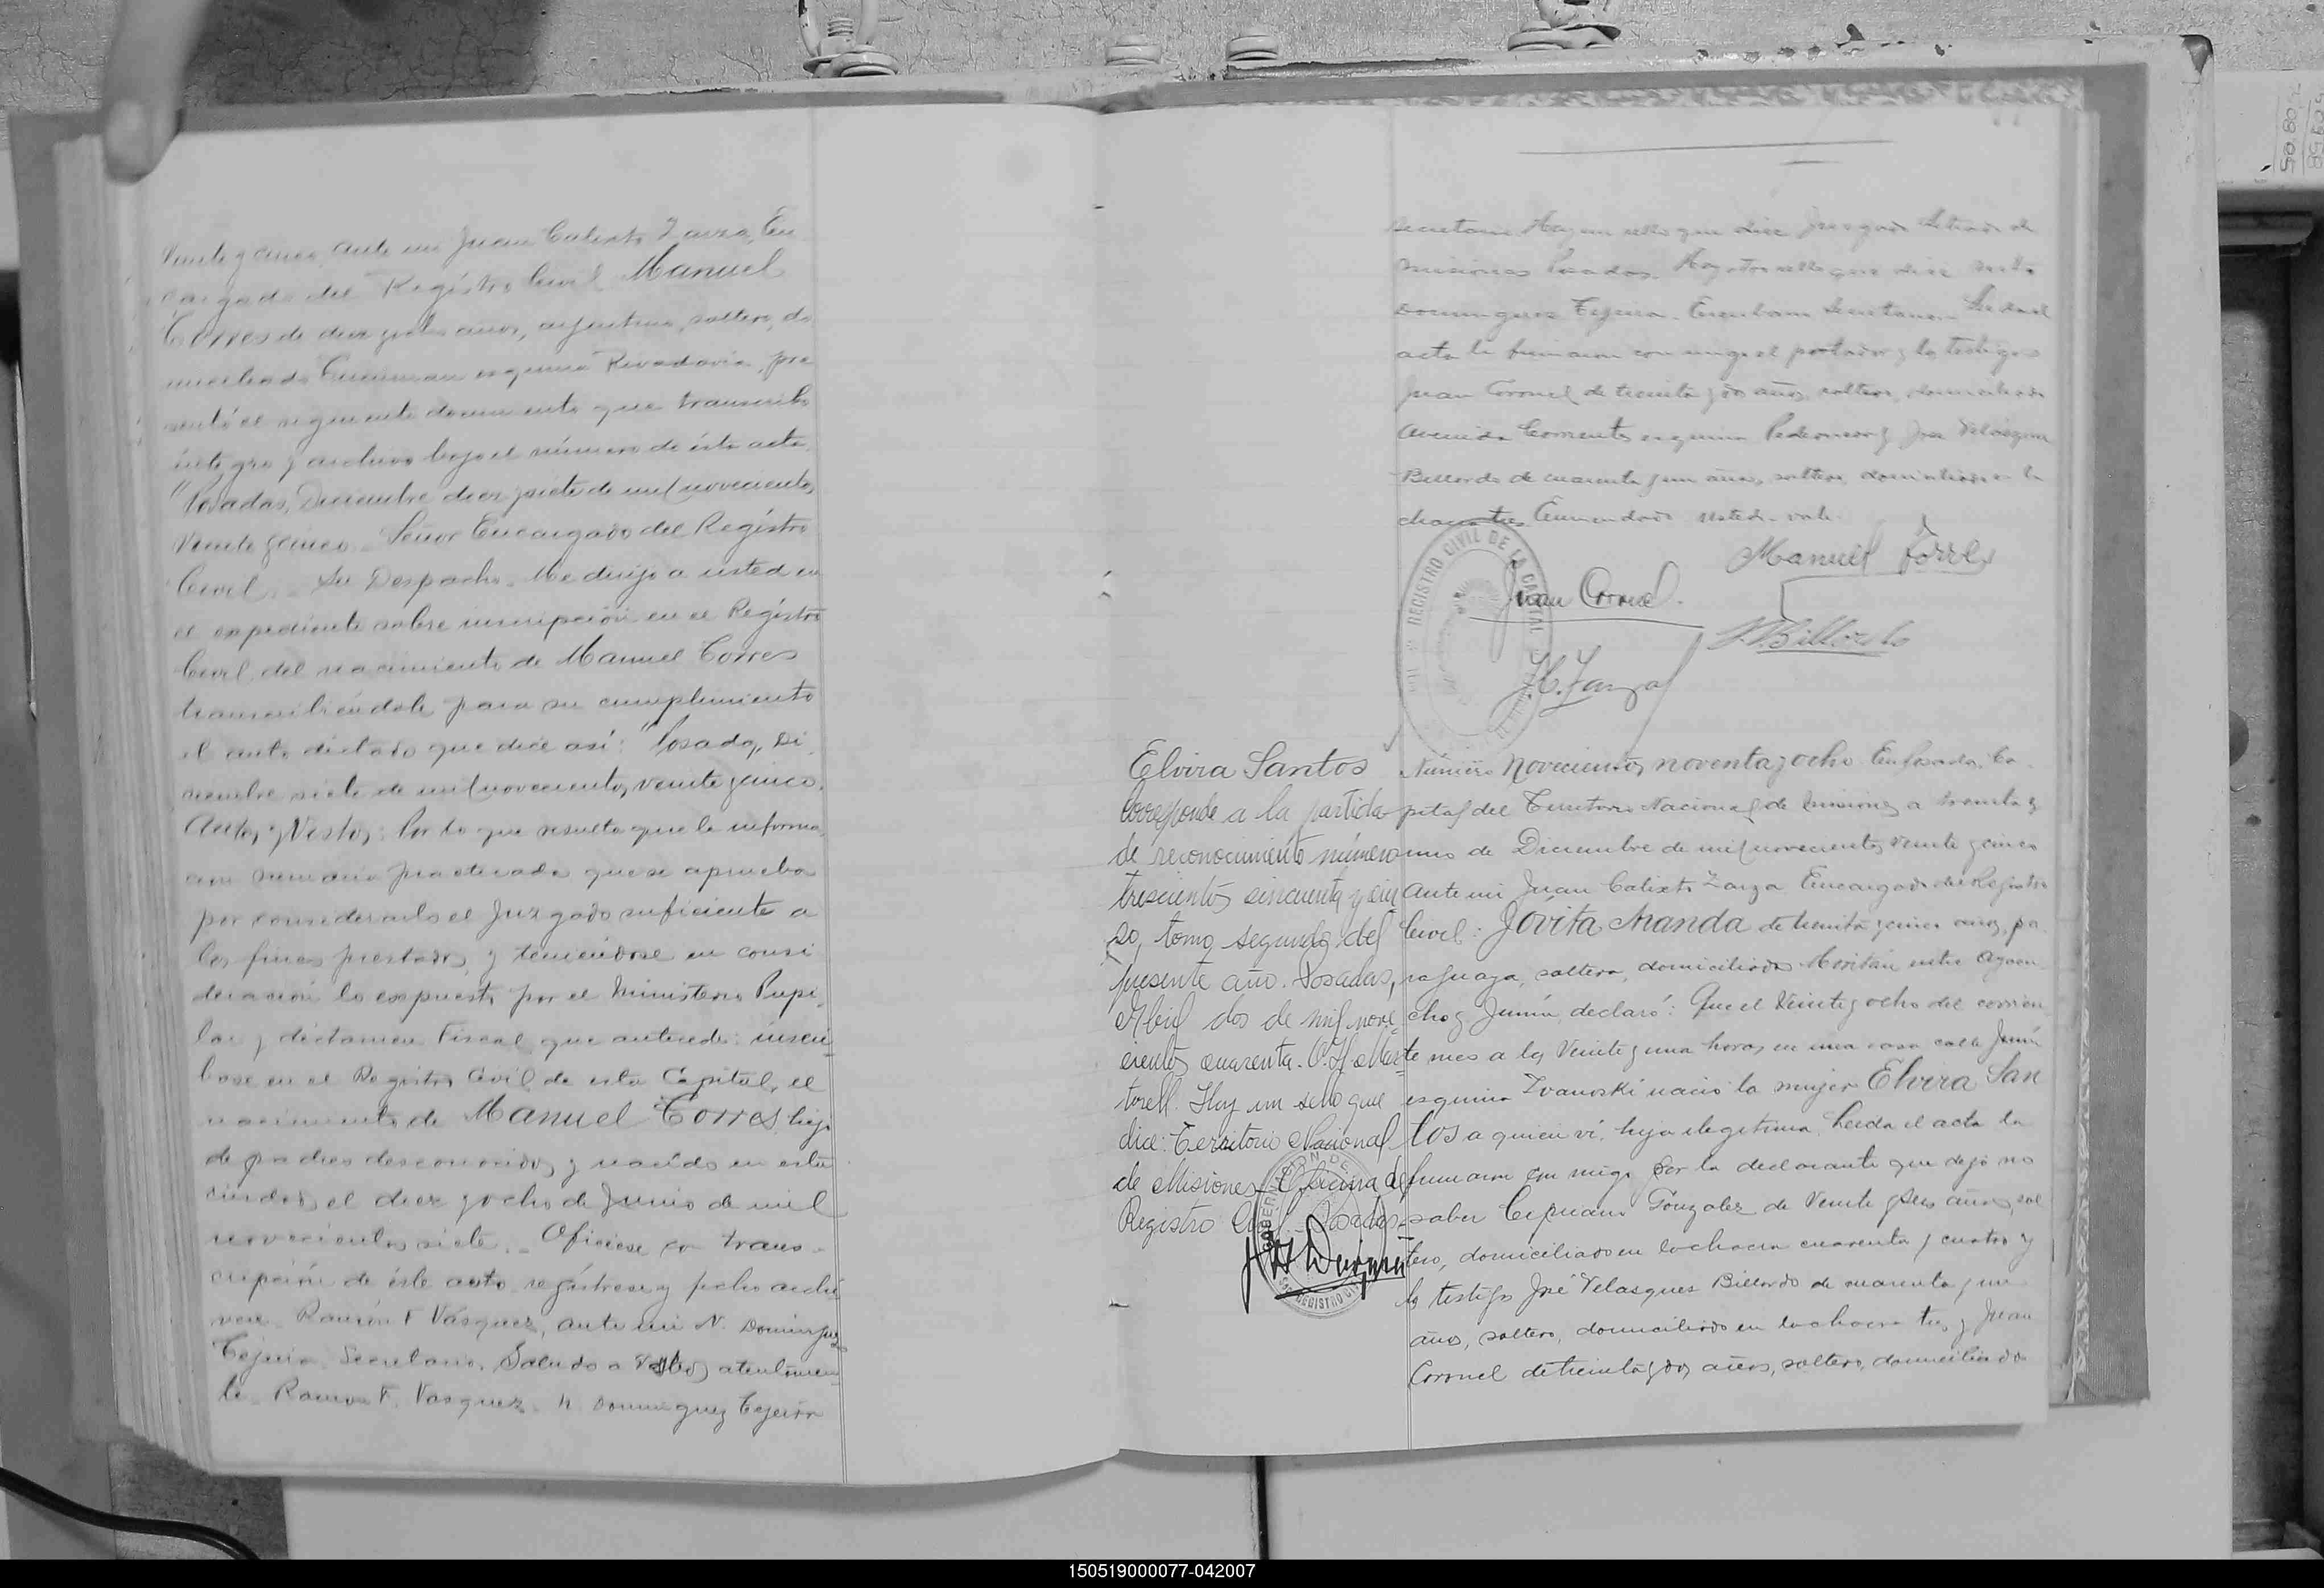 veinte y cinco, ante mi Juan Calixto Zarza, En
cargado del Registro Civil Manuel
Torres de diez y ocho años, argentino, soltero, do
miciliado Tucuman esquina Rivadavia, pre
sentó el siguiente documento que transcribo
íntegro y archivo bajo el número de ésta acta.
"Posadas, Diciembre diez y siete de mil novecientos
veinte y cinco. Señor Encargado del Registro
Civil. Su Despacho. Me dirijo a usted en
el expediente sobre inscripción en el Registro
Civil del nacimiento de Manuel Torres
transcribiéndole para su cumplimiento
el auto dictado que dice así: "Posadas, Di
ciembre siete de mil novecientos veinte y cinco.
Autos y Vistos: Por lo que resulta que la informa
cion sumaria practicada que se aprueba
por considerarlo el Juzgado suficiente a
los fines prestados y teniéndose en consi
deración lo expuesto por el Ministerio Pupi
lar y dictamen Fiscal que antecede: inscrí
base en el Registro Civil de esta Capital, el
nacimiento de Manuel Torres hijo
de padres desconocidos y nacido en esta
ciudad el diez y ocho de Junio de mil
novecientos siete. Ofíciese con trans
cripción de éste auto regístrese y fecho archí
vese. Ramón F Vásquez, ante mi N. Dominguez
Tejeira. Secretario. Saludo a atentamen
te. Ramon F. Vasquez. N. Dominguez Tejeira
Secretario. Hay un sello que dice Juzgado Letrado de
Misiones Posadas. Hay otro sello que dice
Dominguez Tejeira. Escribano Secretario. Leida el
acta la firmaron con migo el portador y los testigos
Juan Coronel de treinta y dos años, soltero, domiciliado
Avenida Corrientes esquina y José Velásquez
Billordo de cuarenta y un años, soltero, domiciliado en la
chacra tres. Enmendado usted. vale.
Manuel Torres
Juan Coronel.
Billordo
J.C. Zarza
REGISTRO CIVIL DE LA CAPITAL
Elvira Santos
Corresponde a la partida
de reconocimiento número
trescientos sincuenta y cin
co, tomo segundo del
presente año. Posadas,
Abril dos de mil nove
cientos cuarenta. Mar
torell. Hay un sello que
dice: Territorio Nacional
de Misiones. Oficina de
Registro Civil - Posadas.
REGISTRO CIVIL
Número Novecientos noventa y ocho. En Posadas, Ca
pital del Territorio Nacional de Misiones a treinta y
uno de Diciembre de mil novecientos veinte y cinco
Ante mi Juan Calixto Zarza Encargado del Registro
Civil: Jovita Aranda de treinta y cinco años, pa
raguaya, soltera, domiciliada entre Ayacu
cho y Junín, declaró: Que el veinte y ocho del corrien
te mes a las veinte y una horas en una casa calle Junín
esquina Ivanoski nació la mujer Elvira San
tos a quien ví, hija ilegitima. Leida el acta la
firmaron con migo por la declarante que dejó no
saber Cipriano González de veinte y seis años, sol
tero, domiciliado en la chacra cuarenta y cuatro y
los testigos José Velasquez Billordo de cuarenta y un
años, soltero, domiciliado en la chacra tres y Juan
Coronel de treinta y dos años, soltero, domiciliado
150519000077-042007